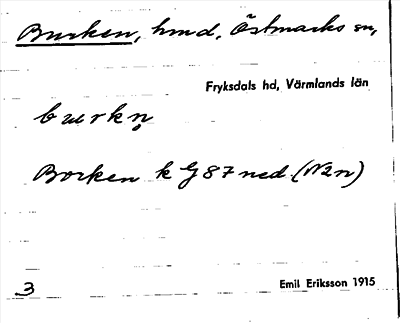 Burken, hmd, Östmarks sn,
Fryksdals hd, Värmlands län
burkn̥
Borken k G 87 ned. (N2n)
3
Emil Eriksson 1915